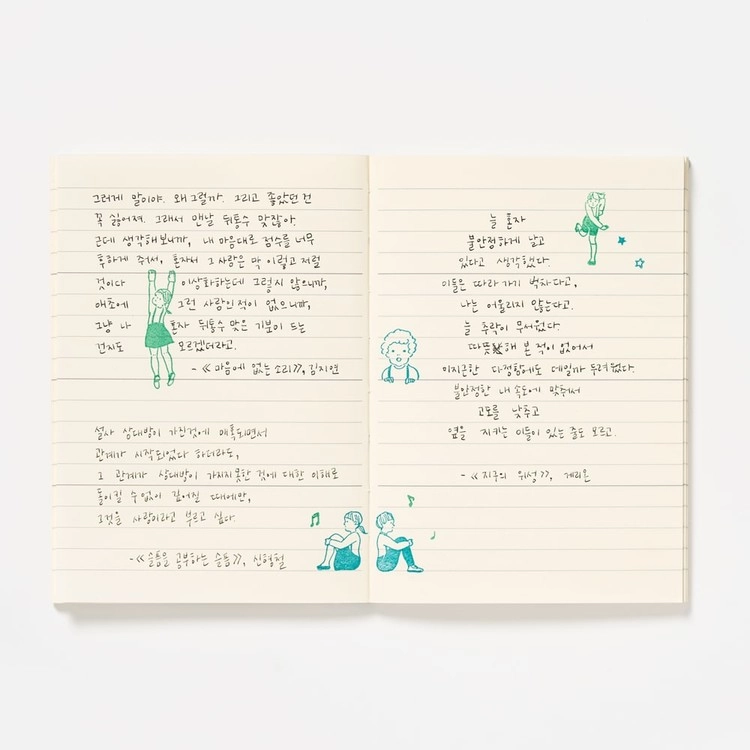 그러게 말이야. 왜 그럴까. 그리고 좋았던 건
꼭 싫어져. 그래서 맨날 뒤통수 맞잖아.
근데 생각해보니까, 내 마음대로 점수를 너무
후하게 줘서, 혼자서 그 사람은 막 이렇고 저럴
것이다 이상화하는데 그렇지 않으니까,
애초에 그런 사람인 적이 없으니까,
그냥 나 혼자 뒤통수 맞은 기분이 드는
건지도 모르겠더라고.
-《마음에 없는 소리》, 김지연
설사 상대방이 가진것에 매혹되면서
관계가 시작되었다 하더라도,
그 관계가 상대방이 가지지못한 것에 대한 이해로
돌이킬 수 없이 깊어질 때에만,
그것을 사랑이라고 부르고 싶다.
-《슬픔을 공부하는 슬픔》, 신형철
늘 혼자
불안정하게 날고
있다고 생각했다
이들은 따라 가기 벅차다고,
나는 어울리지 않는다고.
늘 추락이 무서웠다.
따뜻해 본 적이 없어서
미지근한 다정함에도 데일까 두려웠다.
불안정한 내 속도에 맞춰서
고도를 낮추고
옆을 지키는 이들이 있는 줄도 모르고.
-《지구의 위성》,